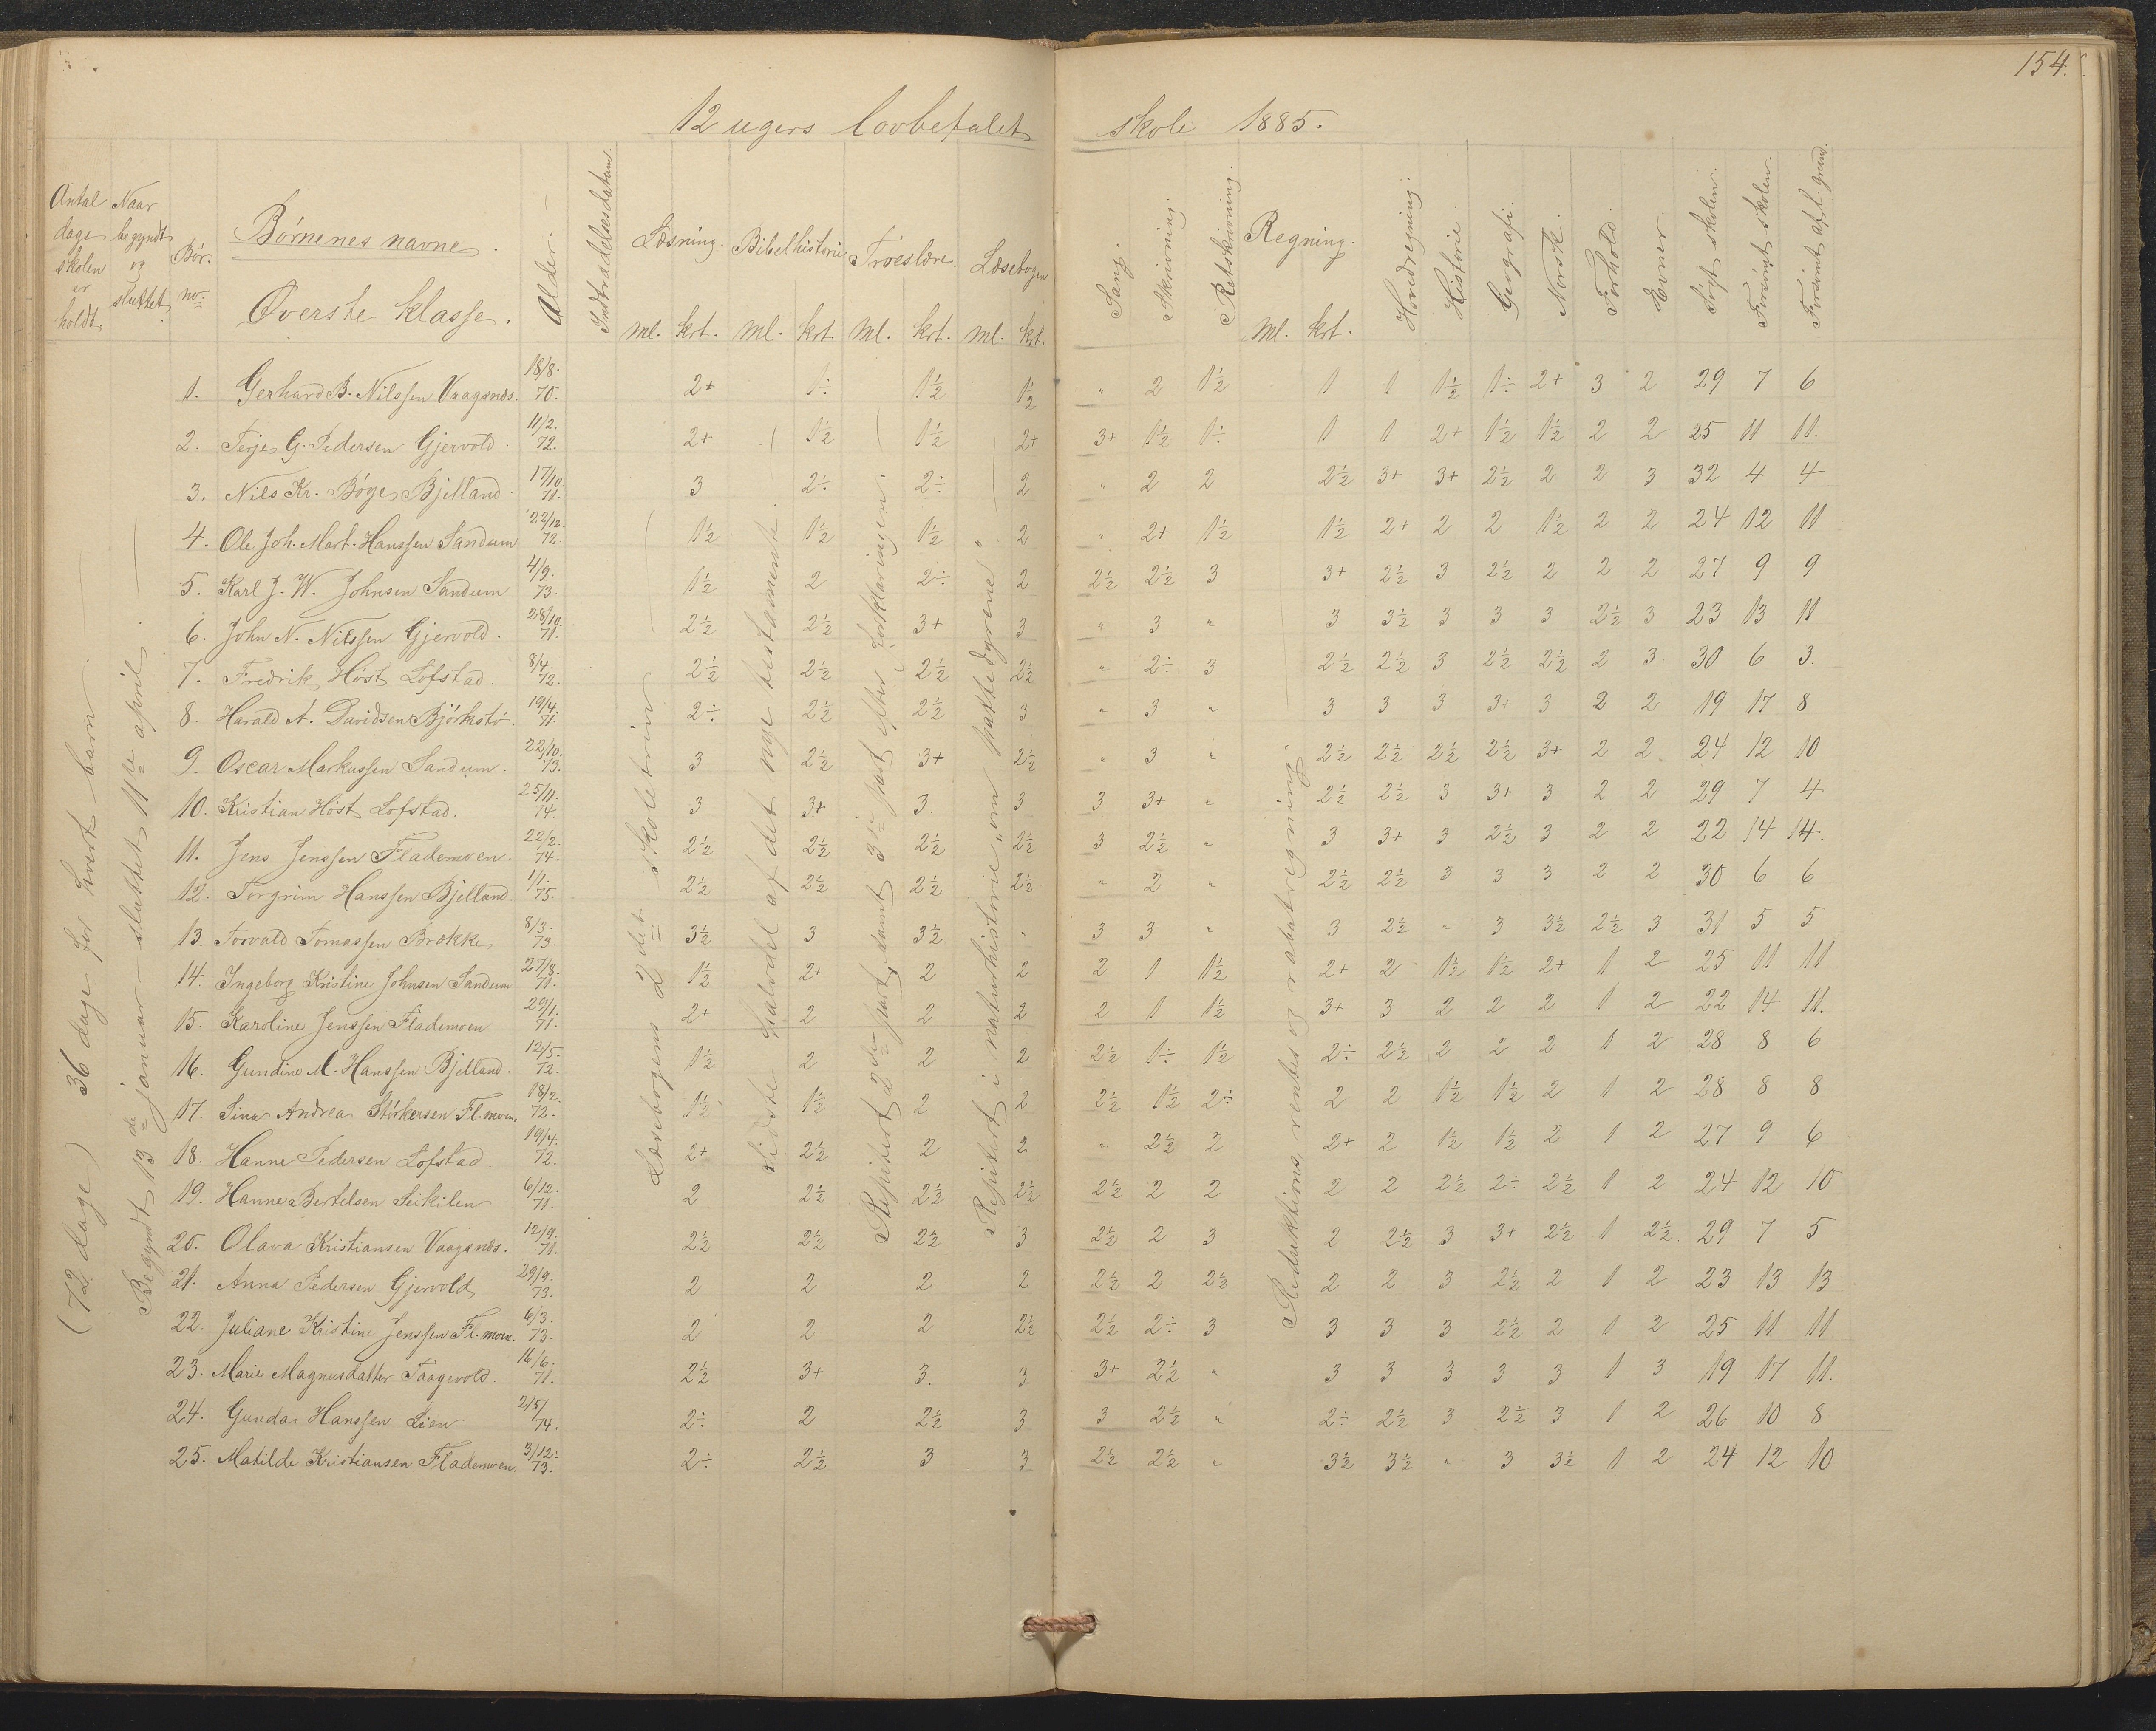 154.
12 ugers lovbefalet skole 1885.
Antal dage skolen er holdt
Naar begyndt og sluttet
Bør. no.
Børnenes navne.
Øverste klasse.
Alder.
Indtrædelsesdatum.
Læsning. ml. krt.
Bibelhistorie ml. krt.
Troeslære ml. krt.
Læsebogen ml. krt.
Sang.
Skrivning.
Retskrivning.
Regning. ml. krt.
Hovedregning.
Historie
Geografi.
Norsk.
Forhold.
Evner.
Søgt skolen.
Forsømt skolen.
Forsømt af l. grund.
(72 dage) 36 dage for hvert barn
Begyndt 13de januar - sluttet 11te april.
Læsebogens 2det skoletrin
Sidste halvdel af det nye testamente.
Repetert 2den part, samt 3die part efter Forklaringen.
Repetert i naturhistorie „om pattedyrene"
Reduktions, rentes og rabatregning.
1. Gerhard B. Nilssen Vaagsnes. 18/8. 70. 2+ 1÷ 1½ 1½ " 2 1½ 1 1 1½ 1÷ 2+ 3 2 29 7 6
2. Terje G. Pedersen Gjervold. 11/2. 72. 2+ 1½ 1½ 2+ 3+ 1½ 1÷ 1 1 2+ 1½ 1½ 2 2 25 11 11.
3. Nils Kr. Bøge Bjelland. 17/10. 71. 3 2÷ 2÷ 2 " 2 2 2½ 3+ 3+ 2½ 2 2 3 32 4 4
4. Ole Joh. Mart. Hanssen Sandum 22/12. 72. 1½ 1½ 1½ " 2 " 2+ 1½ 1½ 2+ 2 2 1½ 2 2 24 12 11
5. Karl J. W. Johnsen Sandum 4/9. 73. 1½ 2 2÷ 2 2½ 2½ 3 3+ 2½ 3 2½ 2 2 2 27 9 9
6. John N. Nilssen Gjervold. 28/10. 71. 2½ 2½ 3+ 3 " 3 " 3 3½ 3 3 3 2½ 3 23 13 11
7. Fredrik Høst Lofstad. 8/4. 72. 2½ 2½ 2½ 2½ " 2÷ 3 2½ 2½ 3 2½ 2½ 2 3 30 6 3.
8. Harald A. Davidsen Bjørkstø. 19/4. 71. 2÷ 2½ 2½ 3 " 3 " 3 3 3 3+ 3 2 2 19 17 8
9. Oscar Markussen Sandum. 22/10. 73. 3 2½ 3+ 2½ " 3 " 2½ 2½ 2½ 2½ 3+ 2 2 24 12 10
10. Kristian Høst Lofstad. 25/11. 74. 3 3+ 3. 3 3 3+ " 2½ 2½ 3 3+ 3 2 2 29 7 4
11. Jens Jenssen Flademoen. 22/2. 74. 2½ 2½ 2½ 2½ 3 2½ " 3 3+ 3 2½ 3 2 2 22 14 14.
12. Torgrim Hanssen Bjelland. 1/1. 75. 2½ 2½ 2½ 2½ " 2 " 2½ 2½ 3 3 3 2 2 30 6 6
13. Torvald Tomassen Brække 8/3. 73. 3½ 3 3½ " 3 3 " 3 2½ " 3 3½ 2½ 3 31 5 5
14. Ingeborg Kristine Johnsen Sandum 27/8. 71. 1½ 2+ 2 2 2 1 1½ 2+ 2 1½ 1½ 2+ 1 2 25 11 11
15. Karoline Jenssen Flademoen 29/1. 71. 2+ 2 2 2 2 1 1½ 3+ 3 2 2 2 1 2 22 14 11.
16. Gundine M. Hanssen Bjelland. 12/5. 72. 1½ 2 2 2 2½ 1÷ 1½ 2÷ 2½ 2 2 2 1 2 28 8 6
17. Sina Andrea Størkersen Fl.moen. 18/2. 72. 1½ 1½ 2 2 2½ 1½ 2÷ 2 2 1½ 1½ 2 1 2 28 8 8
18. Hanne Pedersen Lofstad. 19/4. 72. 2+ 2½ 2 2 " 2½ 2 2+ 2 1½ 1½ 2 1 2 27 9 6
19. Hanne Bertelsen Seikilen 6/12. 71. 2 2½ 2½ 2½ 2½ 2 2 2 2 2½ 2÷ 2½ 1 2 24 12 10
20. Olava Kristiansen Vaagsnes. 12/9. 71. 2½ 2½ 2½ 3 2½ 2 3 2 2½ 3 3+ 2½ 1 2½ 29 7 5
21. Anna Pedersen Gjervold 29/9. 73. 2 2 2 2 2½ 2 2½ 2 2 3 2½ 2 1 2 23 13 13
22. Juliane Kristine Jenssen Fl.moen. 6/3. 73. 2 2 2 2½ 2½ 2÷ 3 3 3 3 2½ 2 1 2 25 11 11
23. Marie Magnusdatter Taagevold. 16/6. 71. 2½ 3+ 3. 3 3+ 2½ " 3 3 3 3 3 1 3 19 17 11.
24. Gunda Hanssen Lien 2/5/ 74. 2÷ 2 2½ 3 3 2½ " 2÷ 2½ 3 2½ 3 1 2 26 10 8
25. Matilde Kristiansen Flademoen. 3/12. 73. 2÷ 2½ 3 3 2½ 2½ " 3½ 3½ " 3 3½ 1 2 24 12 10